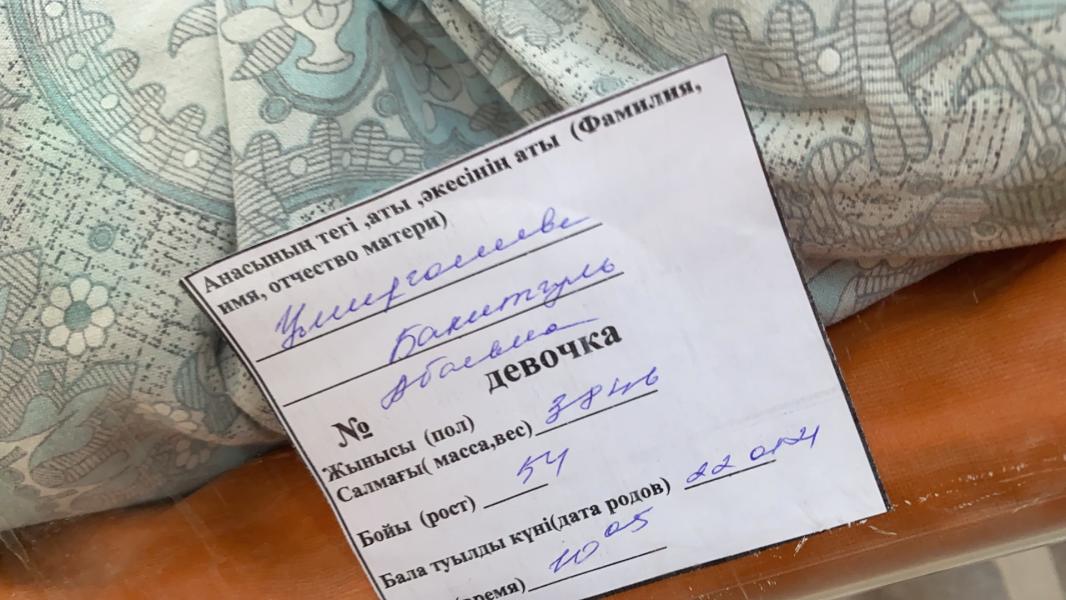 Анасының тегі ,аты ,әкесінің аты (Фамилия,
имя, отчество матери)
Бакитгуль
Абаевна
девочка
№
Жынысы (пол)
Салмағы( масса,вес) 3846
Бойы (рост) 54
Бала туылды күні(дата родов) 22
10 05